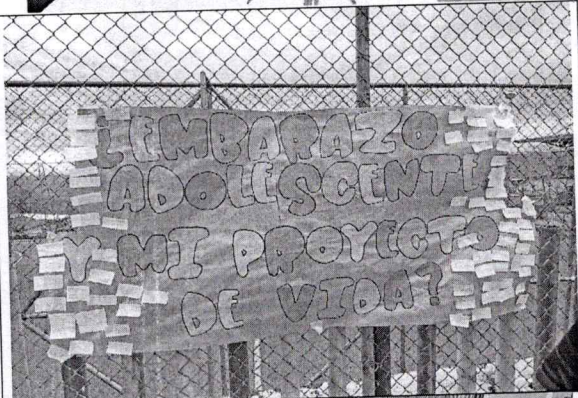 ¿EMBARAZO
ADOLESCENTE
Y MI PROYECTO
DE VIDA?